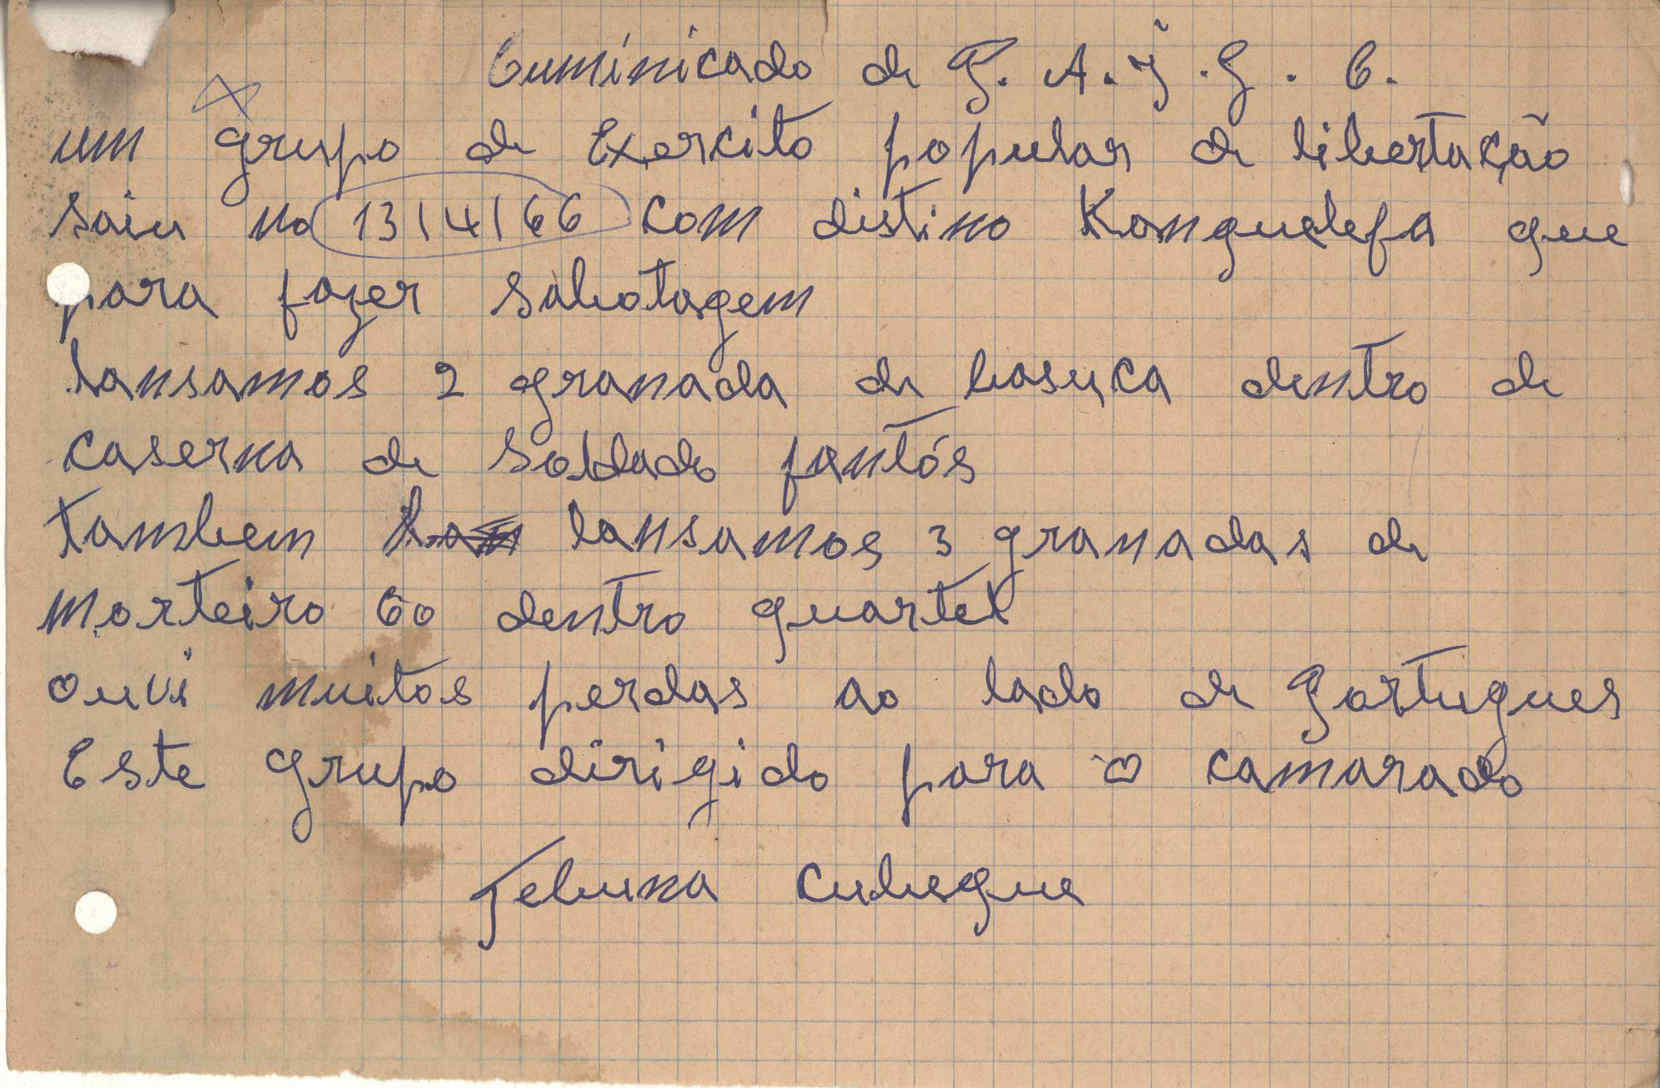 Cuminicado de P. A. I. G. C.
um grupo de Exercito popular de libertação
saiu no 13/4/66 com distino Kanquelefa que
para fazer sabotagem
lansamos 2 granada de basuca dentro de
caserna de Soldado fantós
tambem lansamos 3 granadas de
morteiro 60 dentro quartel
ouvi muitos perdas ao lado de Portugues
Este grupo dirigido para o camarado
Jebuna Cubegue